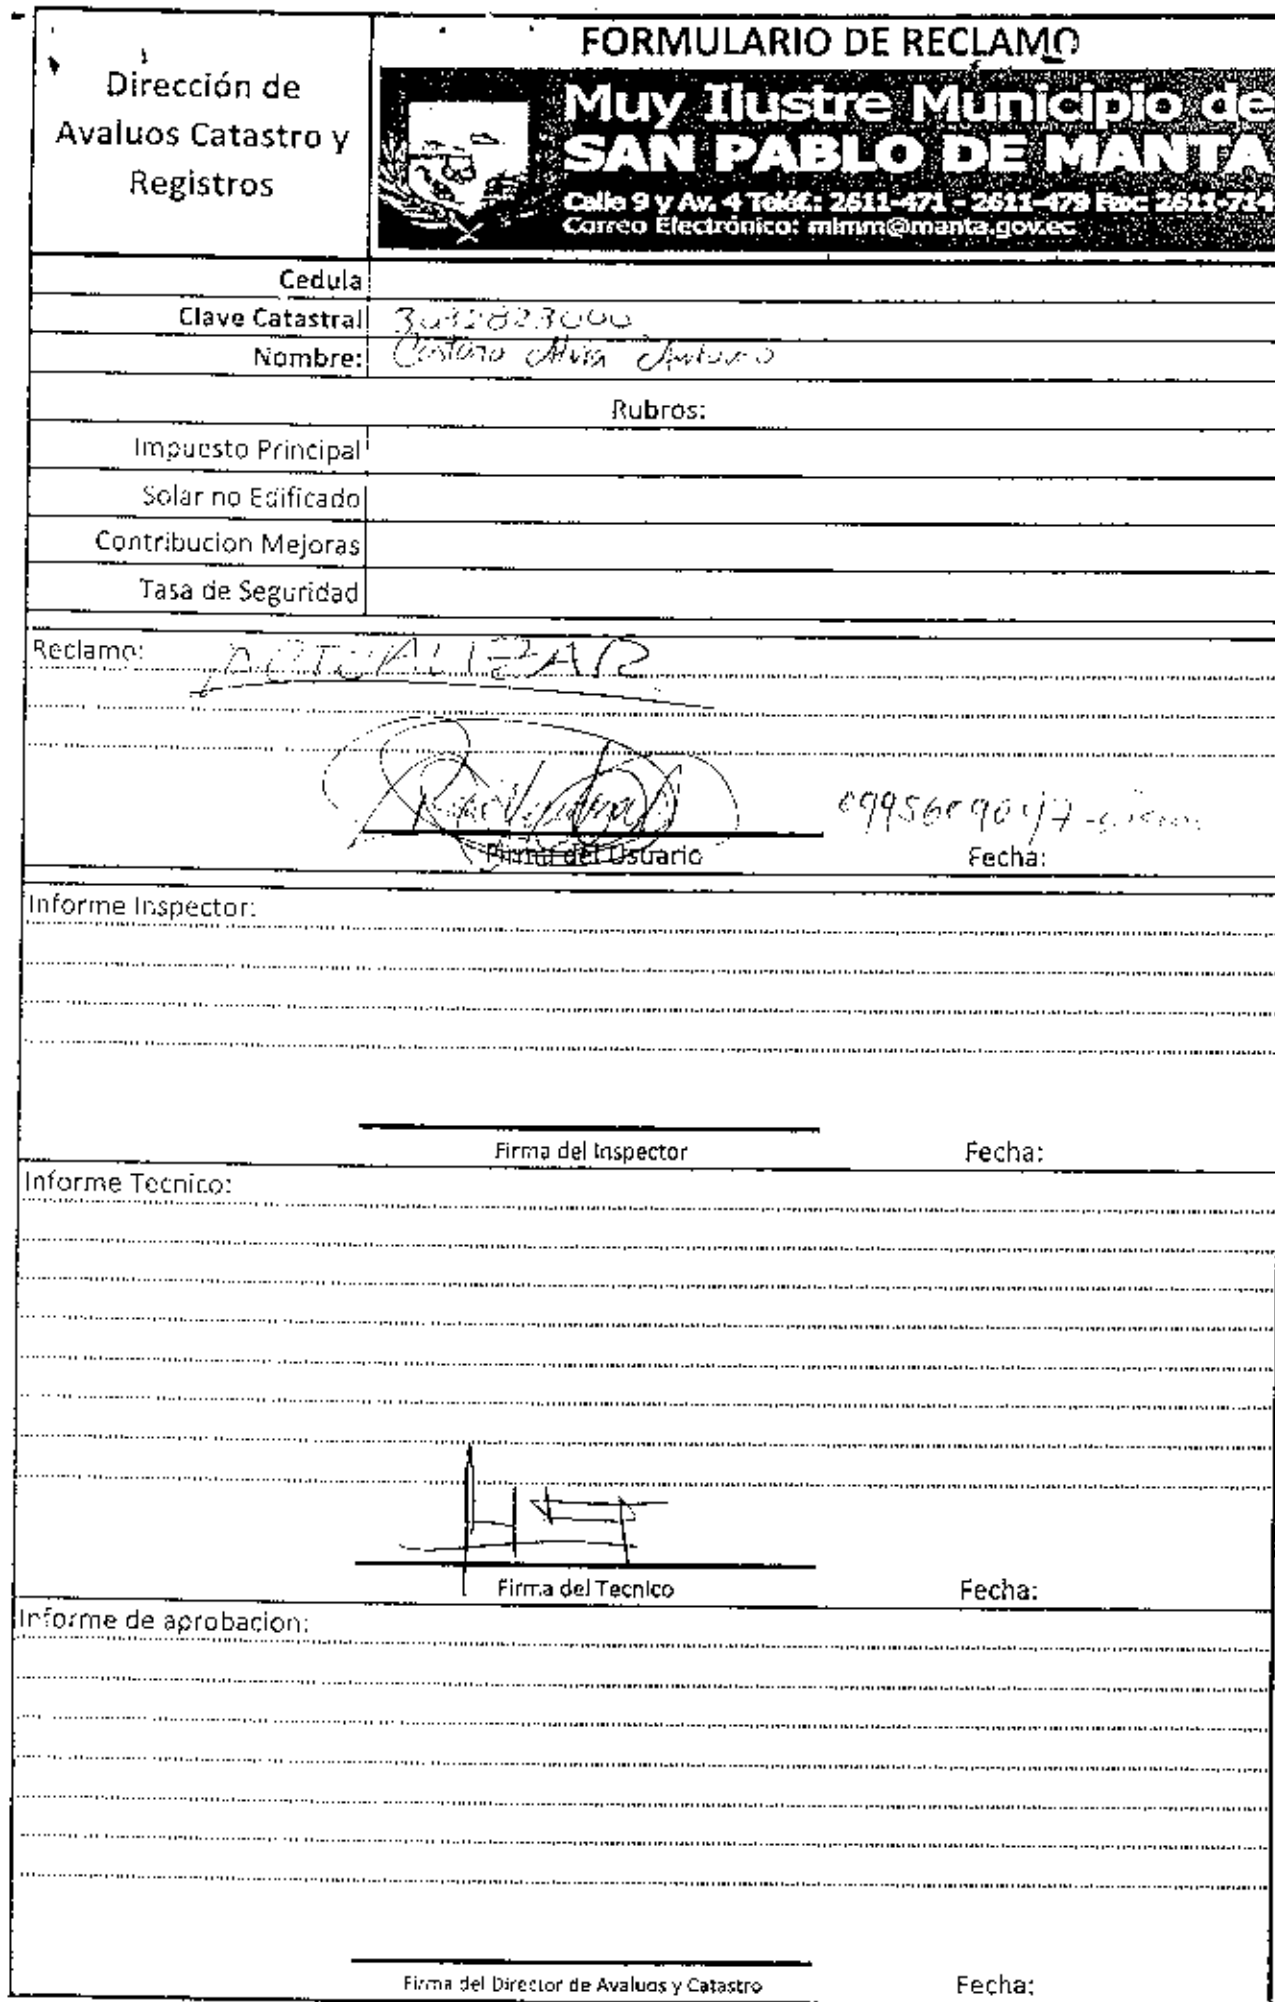 FORMULARIO DE RECLAMO
Dirección de
Avaluos Catastro y
Registros
Muy Ilustre Municipio de
SAN PABLO DE MANTA
Calle 9 y Av. 4 Teléf.: 2611-471 - 2611-479 Fax: 2611-714
Correo Electrónico: mimm@manta.gov.ec
Cedula
Clave Catastral 3032823000
Nombre:
Rubros:
Impuesto Principal
Solar no Edificado
Contribucion Mejoras
Tasa de Seguridad
Reclamo: ACTUALIZAR
Firma del Usuario
Fecha:
Informe Inspector:
Firma del Inspector Fecha:
Informe Tecnico:
Firma del Tecnico Fecha:
Informe de aprobacion:
Firma del Director de Avaluos y Catastro Fecha: